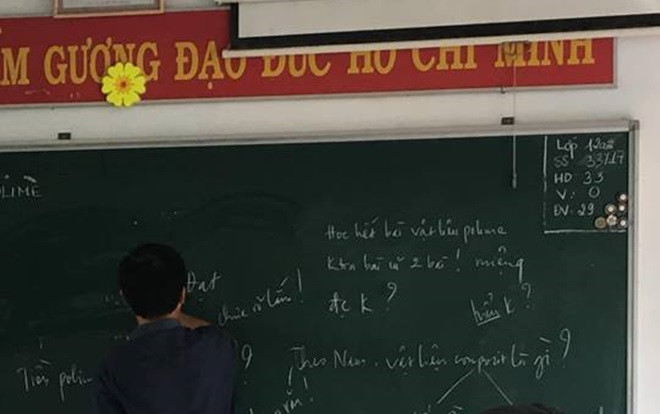 M GƯƠNG ĐẠO ĐỨC HỒ CHÍ MINH
OLIME
Lớp 12
SS 33/17
HD 33
V: 0
ĐV: 29
Học hết bài vật liệu polime
bài cũ 2 bài! miệng
Đạt
chưa rõ lắm!
đc k?
hiểu k?
Tiền polim
?
Theo Nam, vật liệu compozit là gì?
!